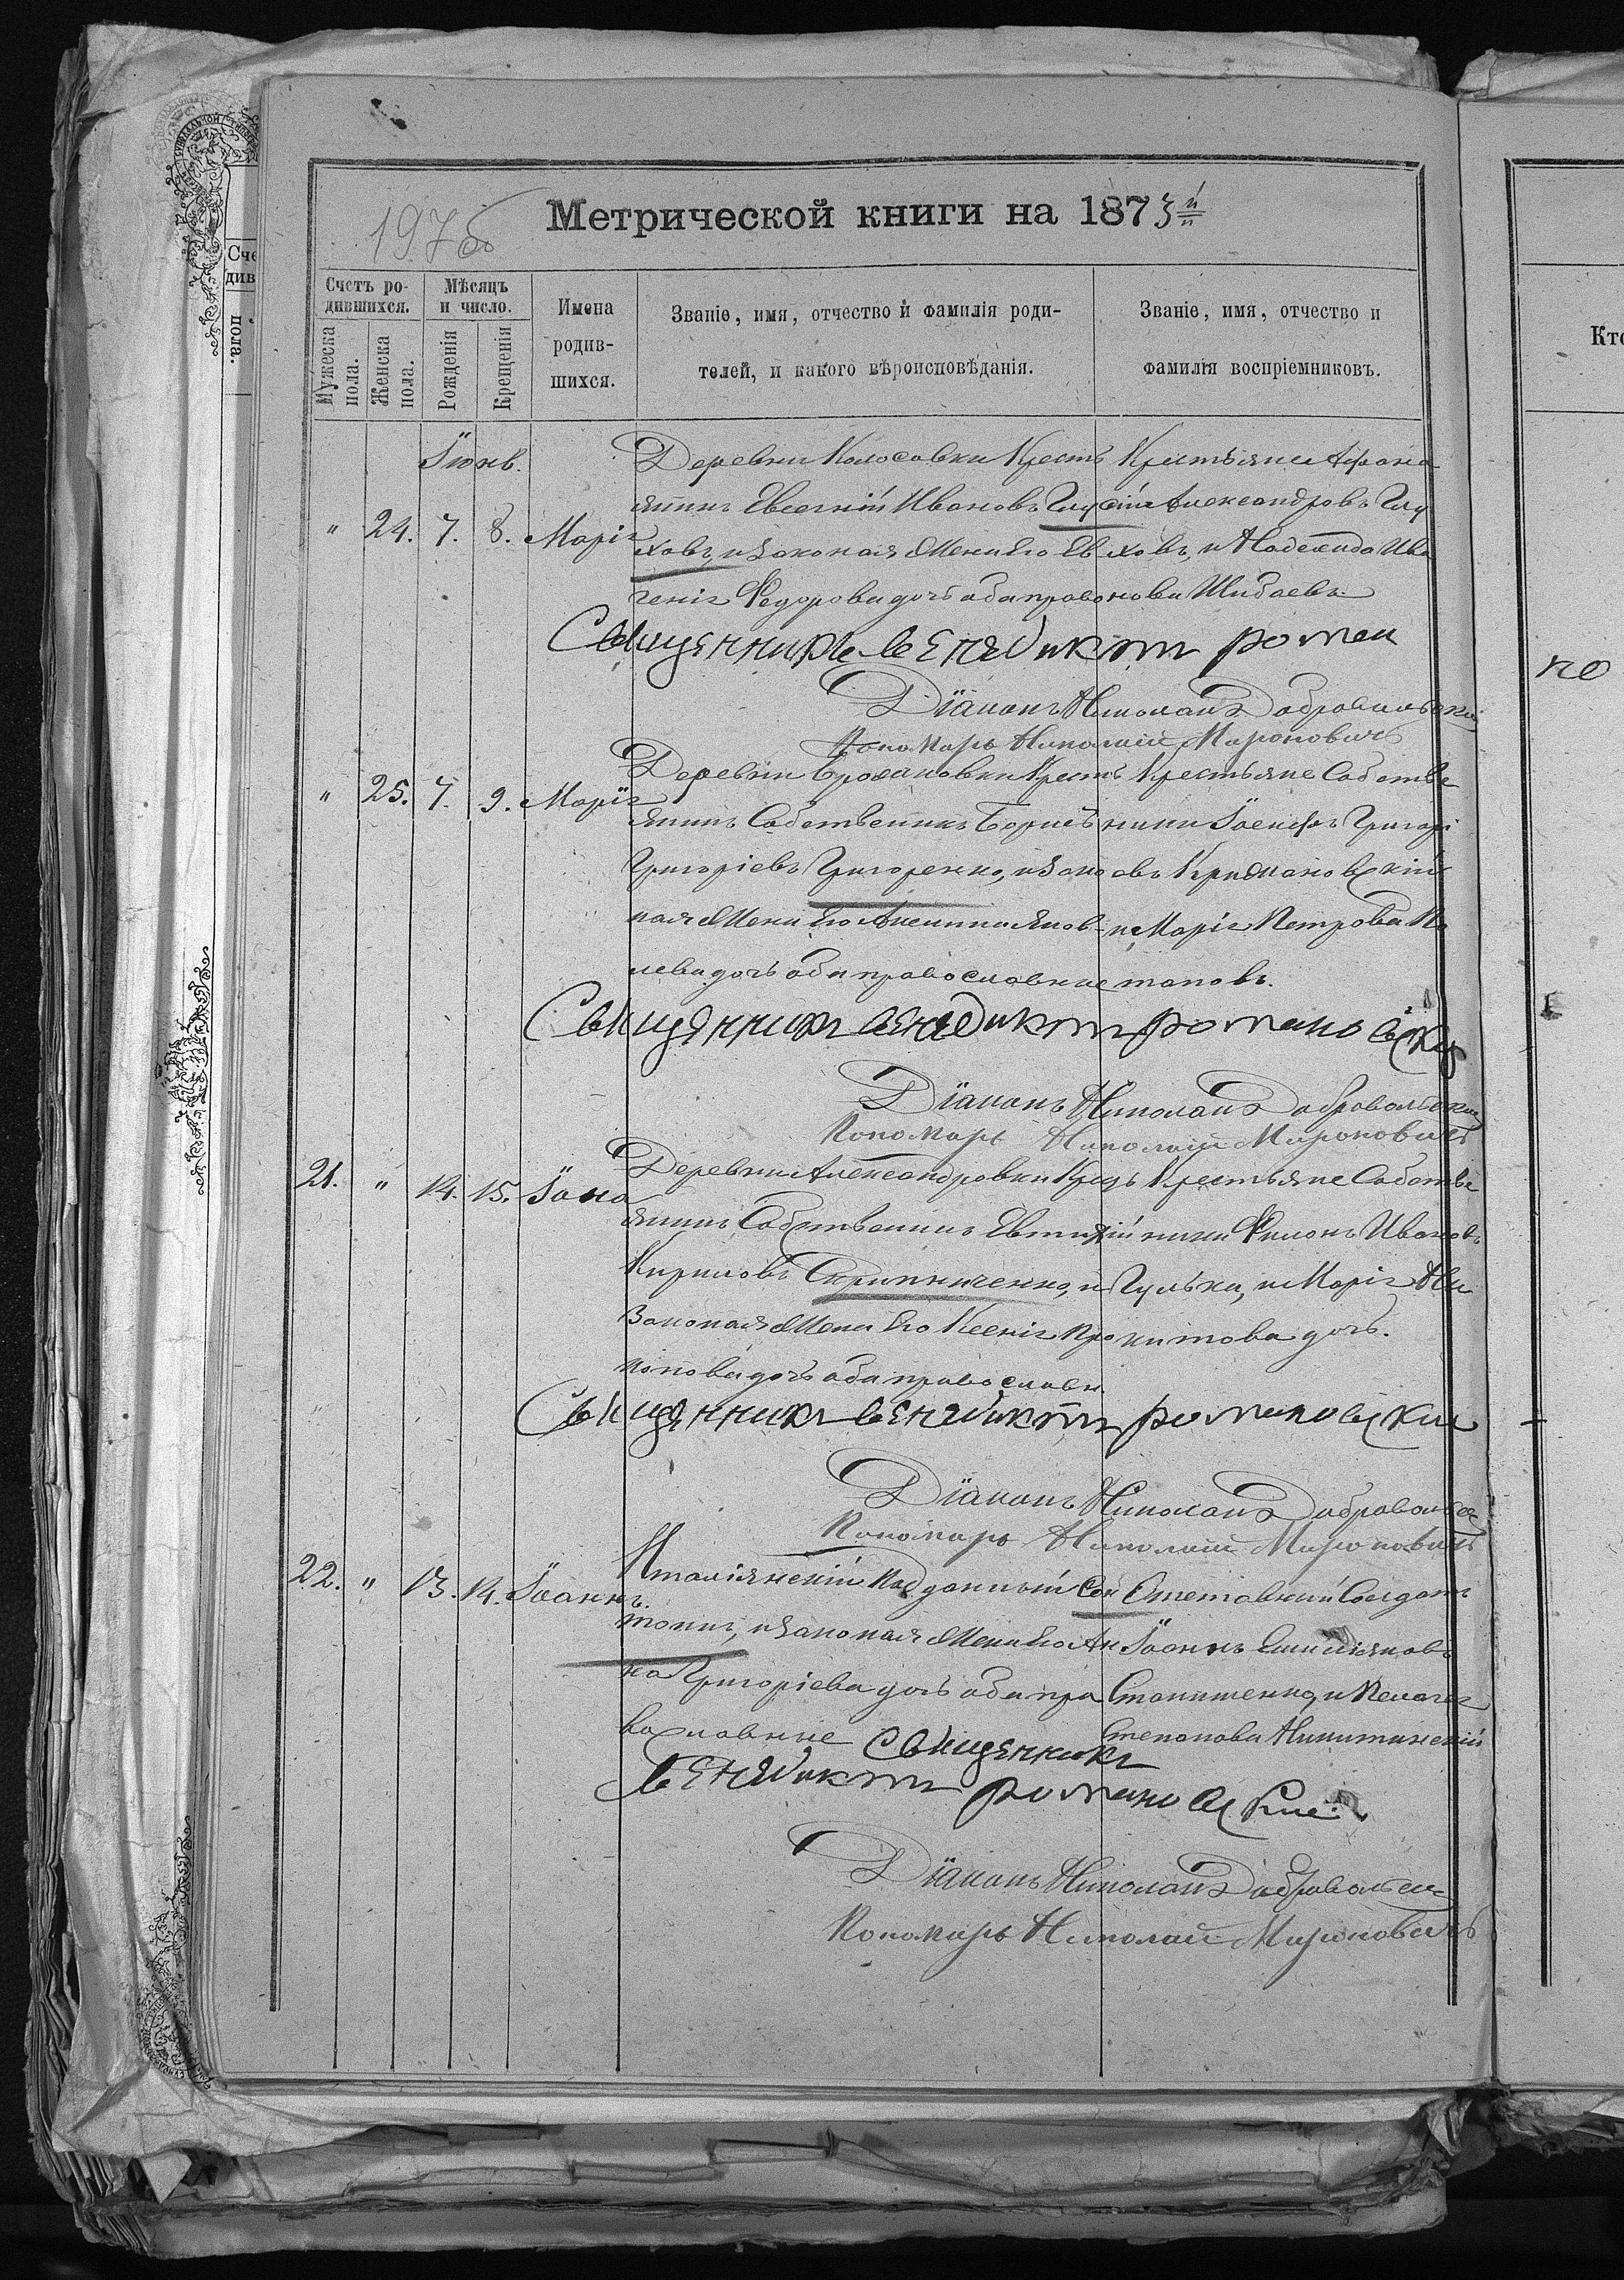 197 об
Метрической книги на 1873й
Счетъ ро-
дившихся.
Мѣсяцъ
и число.
Имена
родив-
шихся.
Званіе, имя, отчество и фамилія роди-
телей, и какого вѣроисповѣданія.
Званіе, имя, отчество и
фамилія воспріемниковъ.
Мужеска
пола.
Женска
пола.
Рожденія
Крещенія
Іюнь.
" 24. 7. 8. Марія
Деревни Колосовки Кресть
янинъ Евсегній Ивановъ Глу
ховъ, и законая Жена Его Ев
генія Федорова дочь оба право
Крестьяне Афана
сій Александровъ Глу
ховъ, и Надежда Ива
нова Шибаевъ.
Священникъ Венедиктъ роман
Діаконъ Николай Добровольскій
Пономарь Николай Мироновичъ
" 25. 7. 9. Марія
Деревни Крестъ
янинъ Собственикъ Борисъ
Григоріевъ Григоренко, и зако
ная Жена Его Аксинна Яков-
лева дочь оба православные
Крестьяне Собстве
ники Іосифъ Григорі
евъ
и Марія Петрова По
таповъ.
Священникъ Венедиктъ романовскій
Діаконъ Николай Добровольскій
Пономарь Николай Мироновичъ
21. " 14. 15. Іона
Деревни Александровки Крес
янинъ Собственикъ Евтихій
Кириловъ Скрипниченко, и
Законая Жена Его Ксенія Про
копова дочь оба православн.
Крестьяне Собстве
ники Филонъ Ивановъ
Гулька, и Марія Ни
китова дочь.
Священникъ Венедиктъ романовскій
Діаконъ Николай Добровольс
Пономарь Николай Мироновичъ
22. " 13. 14. Іоаннъ.
Италіянскій Подданный Сан
тони, и законая Жена Его Ан
на Григоріева дочь оба пра
вославные
Отставкий Солдатъ
Іоаннъ Емиліяновъ
и Пелагея
Степанова
Священникъ
Венедиктъ романовскіи
Діаконъ Николай Добровольс
Пономарь Николай Мироновичъ
Сче
див
пола.
Кто
по